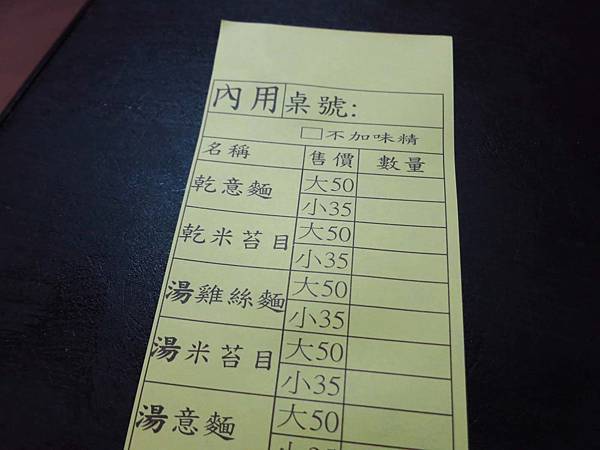 內用 桌號:
□不加味精
名稱 售價 數量
乾意麵 大50
小35
乾米苔目 大50
小35
湯雞絲麵 大50
小35
湯米苔目 大50
小35
湯意麵 大50